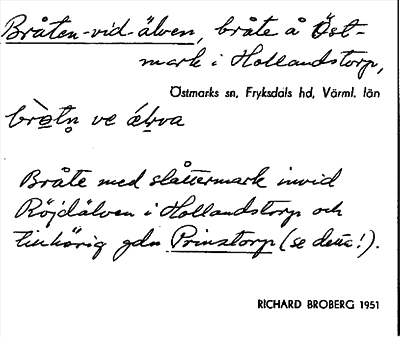 Bråten-vid-älven, bråte å Öst-
mark i Hollandstorp,
Östmarks sn, Fryksdals hd, Värml. län
ve
Bråte med slåttermark invid
Röjdälven i Hollandstorp och
tillhörig gdn Prinstorp (se detta!).
RICHARD BROBERG 1951